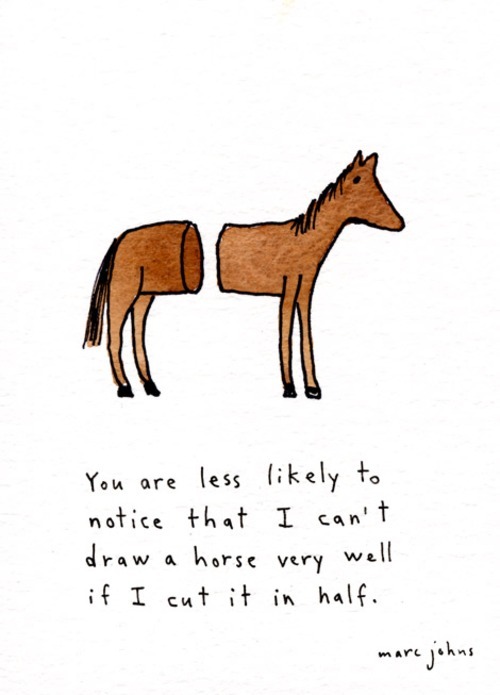 You are less likely to
notice that I can't
draw a horse very well
if I cut it in half.
marc johns